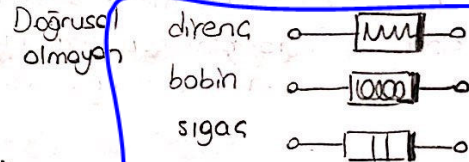 Doğrusal
olmayan
direnç
bobin
sıgaç